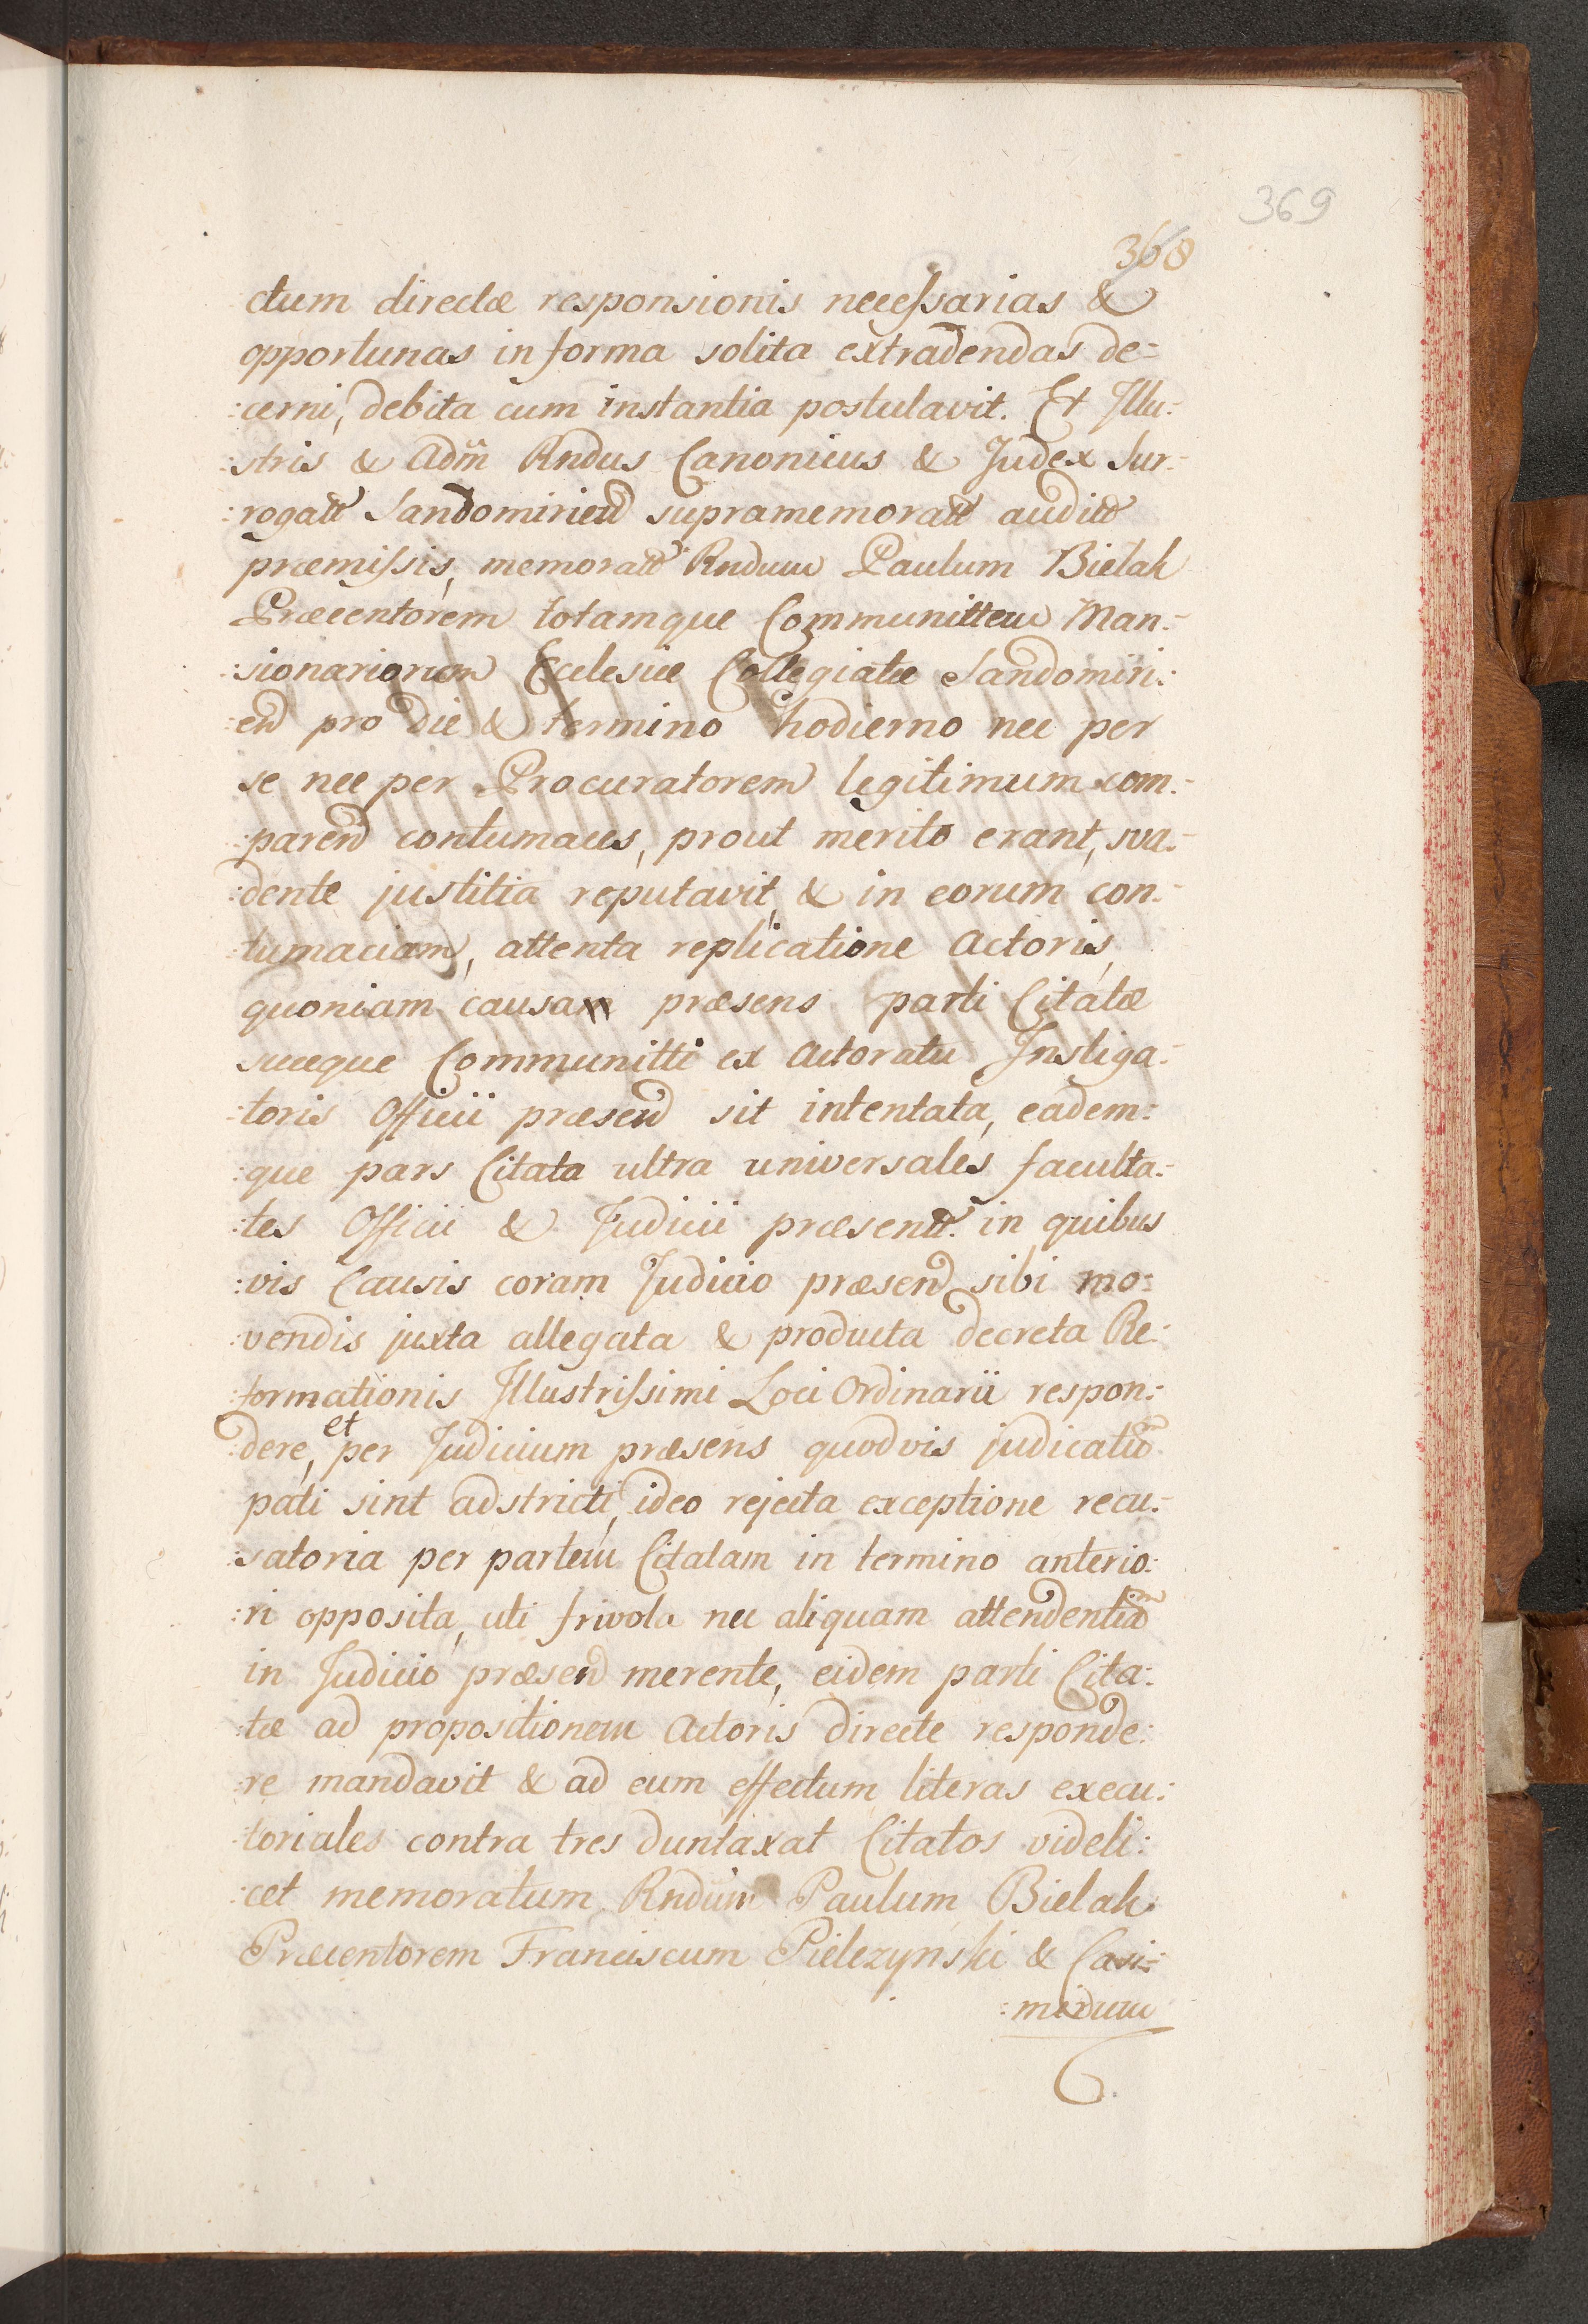 369
368
ctum directæ responsionis necessarias &
opportunas in forma solita extradendas de=
:cerni, debita cum instantia postulavit. Et Illu:
:stris & Adm̃ Rndus Canonicus & Judex Sur-
:rogatt Sandomirien supramemoratt audit
præmissis, memoratt Rndum Paulum Bielah
Præcentorem totamque Communittem Man:
:sionariorum Ecclesiæ Collegiatæ Sandomiri:
:en pro die & termino hodierno nec per
se nec per Procuratorem legitimum com:
:paren contumaces, prout merito erant, sva:
:dente justitia reputavit, & in eorum con:
:tumaciam, attenta replicatione Actoris,
quoniam causa præsens parti Citatæ
suæque Communitti ex Actoratu Instiga:
:toris Officii præsen sit intentata, eadem:
:que pars Citata ultra universales faculta:
:tes Officii & Judicii præsentt. in quibus
:vis Causis coram Judicio præsen sibi mo:
:vendis juxta allegata & producta decreta Re:
:formationis Illustrissimi Loci Ordinarii respon:
dere, et per Judicium præsens quodvis judicatũ
pati sint adstricti, ideo rejecta exceptione recu:
:satoria per partem Citatam in termino anterio:
:ri opposita, uti frivola nec aliquam attendentiã
in Judicio præsen merente, eidem parti Cita:
:tæ ad propositionem Actoris directe responde:
:re mandavit & ad eum effectum literas execu:
:toriales contra tres duntaxat Citatos videli:
:cet memoratum Rndum Paulum Bielah
Præcentorem Franciscum Pielczynski & Casi:
:mirum